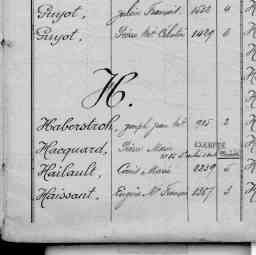 Guyot, Julien François 1532 4
Guyot, Pierre Mie Célestin 1429 6
H.
Haberstroh, Joseph Jean Bte 915 2
Hacquard, Pierre Marie EXEMPTÉ
Hailault, Louis Marie 2239 5
Haissant, Eugène Mie François 1357 3